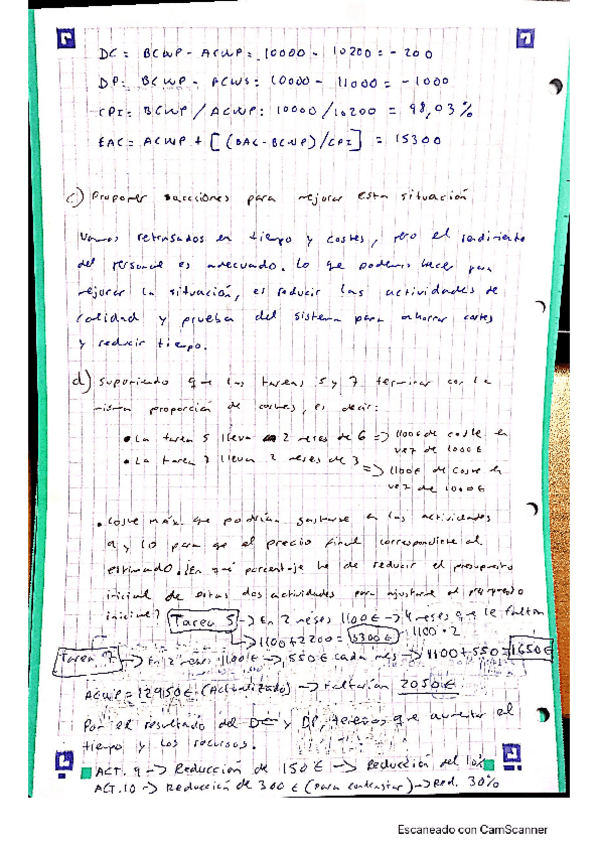 DC = BCWP - ACWP = 10000 - 10200 = - 200
DP = BCWP - BCWS = 10000 - 11000 = - 1000
CPI = BCWP / ACWP = 10000/10200 = 98,03%
EAC = ACWP + [(BAC-BCWP)/CPI] = 15300
c) Proponer acciones para mejorar esta situación
Vamos retrasados en tiempo y costes, pero el rendimiento
del personal es adecuado. Lo que podemos hacer para
mejorar la situación, es reducir las actividades de
calidad y prueba del sistema para ahorrar costes
y reducir tiempo.
d) Suponiendo que las tareas 5 y 7 terminar con la
misma proporción de costes, es decir:
• La tarea 5 lleva 2 meses de 6 => 1100€ de coste en
vez de 1000€
• La tarea 7 llevan 2 meses de 3
=> 1100€ de coste en
vez de 1000€
• Coste máx. que podrían gastarse en las actividades
9 y 10 para que el precio final correspondiese al
estimado. ¿En qué porcentaje he de reducir el presupuesto
inicial de estas dos actividades para ajustarme al presupuesto
inicial?
Tarea 5 -> En 2 meses 1100€ -> 4 meses que le faltan
1100 · 2
-> 1100 + 2200 = 3300€
Tarea 7 -> En 2 meses 1100€ -> 550€ cada mes -> 1100 + 550 = 1650€
ACWP = 12950€ (Actualizado) -> Faltarían 2050€
Por el resultado del DC y DP, tenemos que aumentar el
tiempo y los recursos.
ACT. 9 -> Reducción de 150€ -> Reducción del 10%
ACT. 10 -> Reducción de 300€ (para contrastar) -> Red. 30%
Escaneado con CamScanner